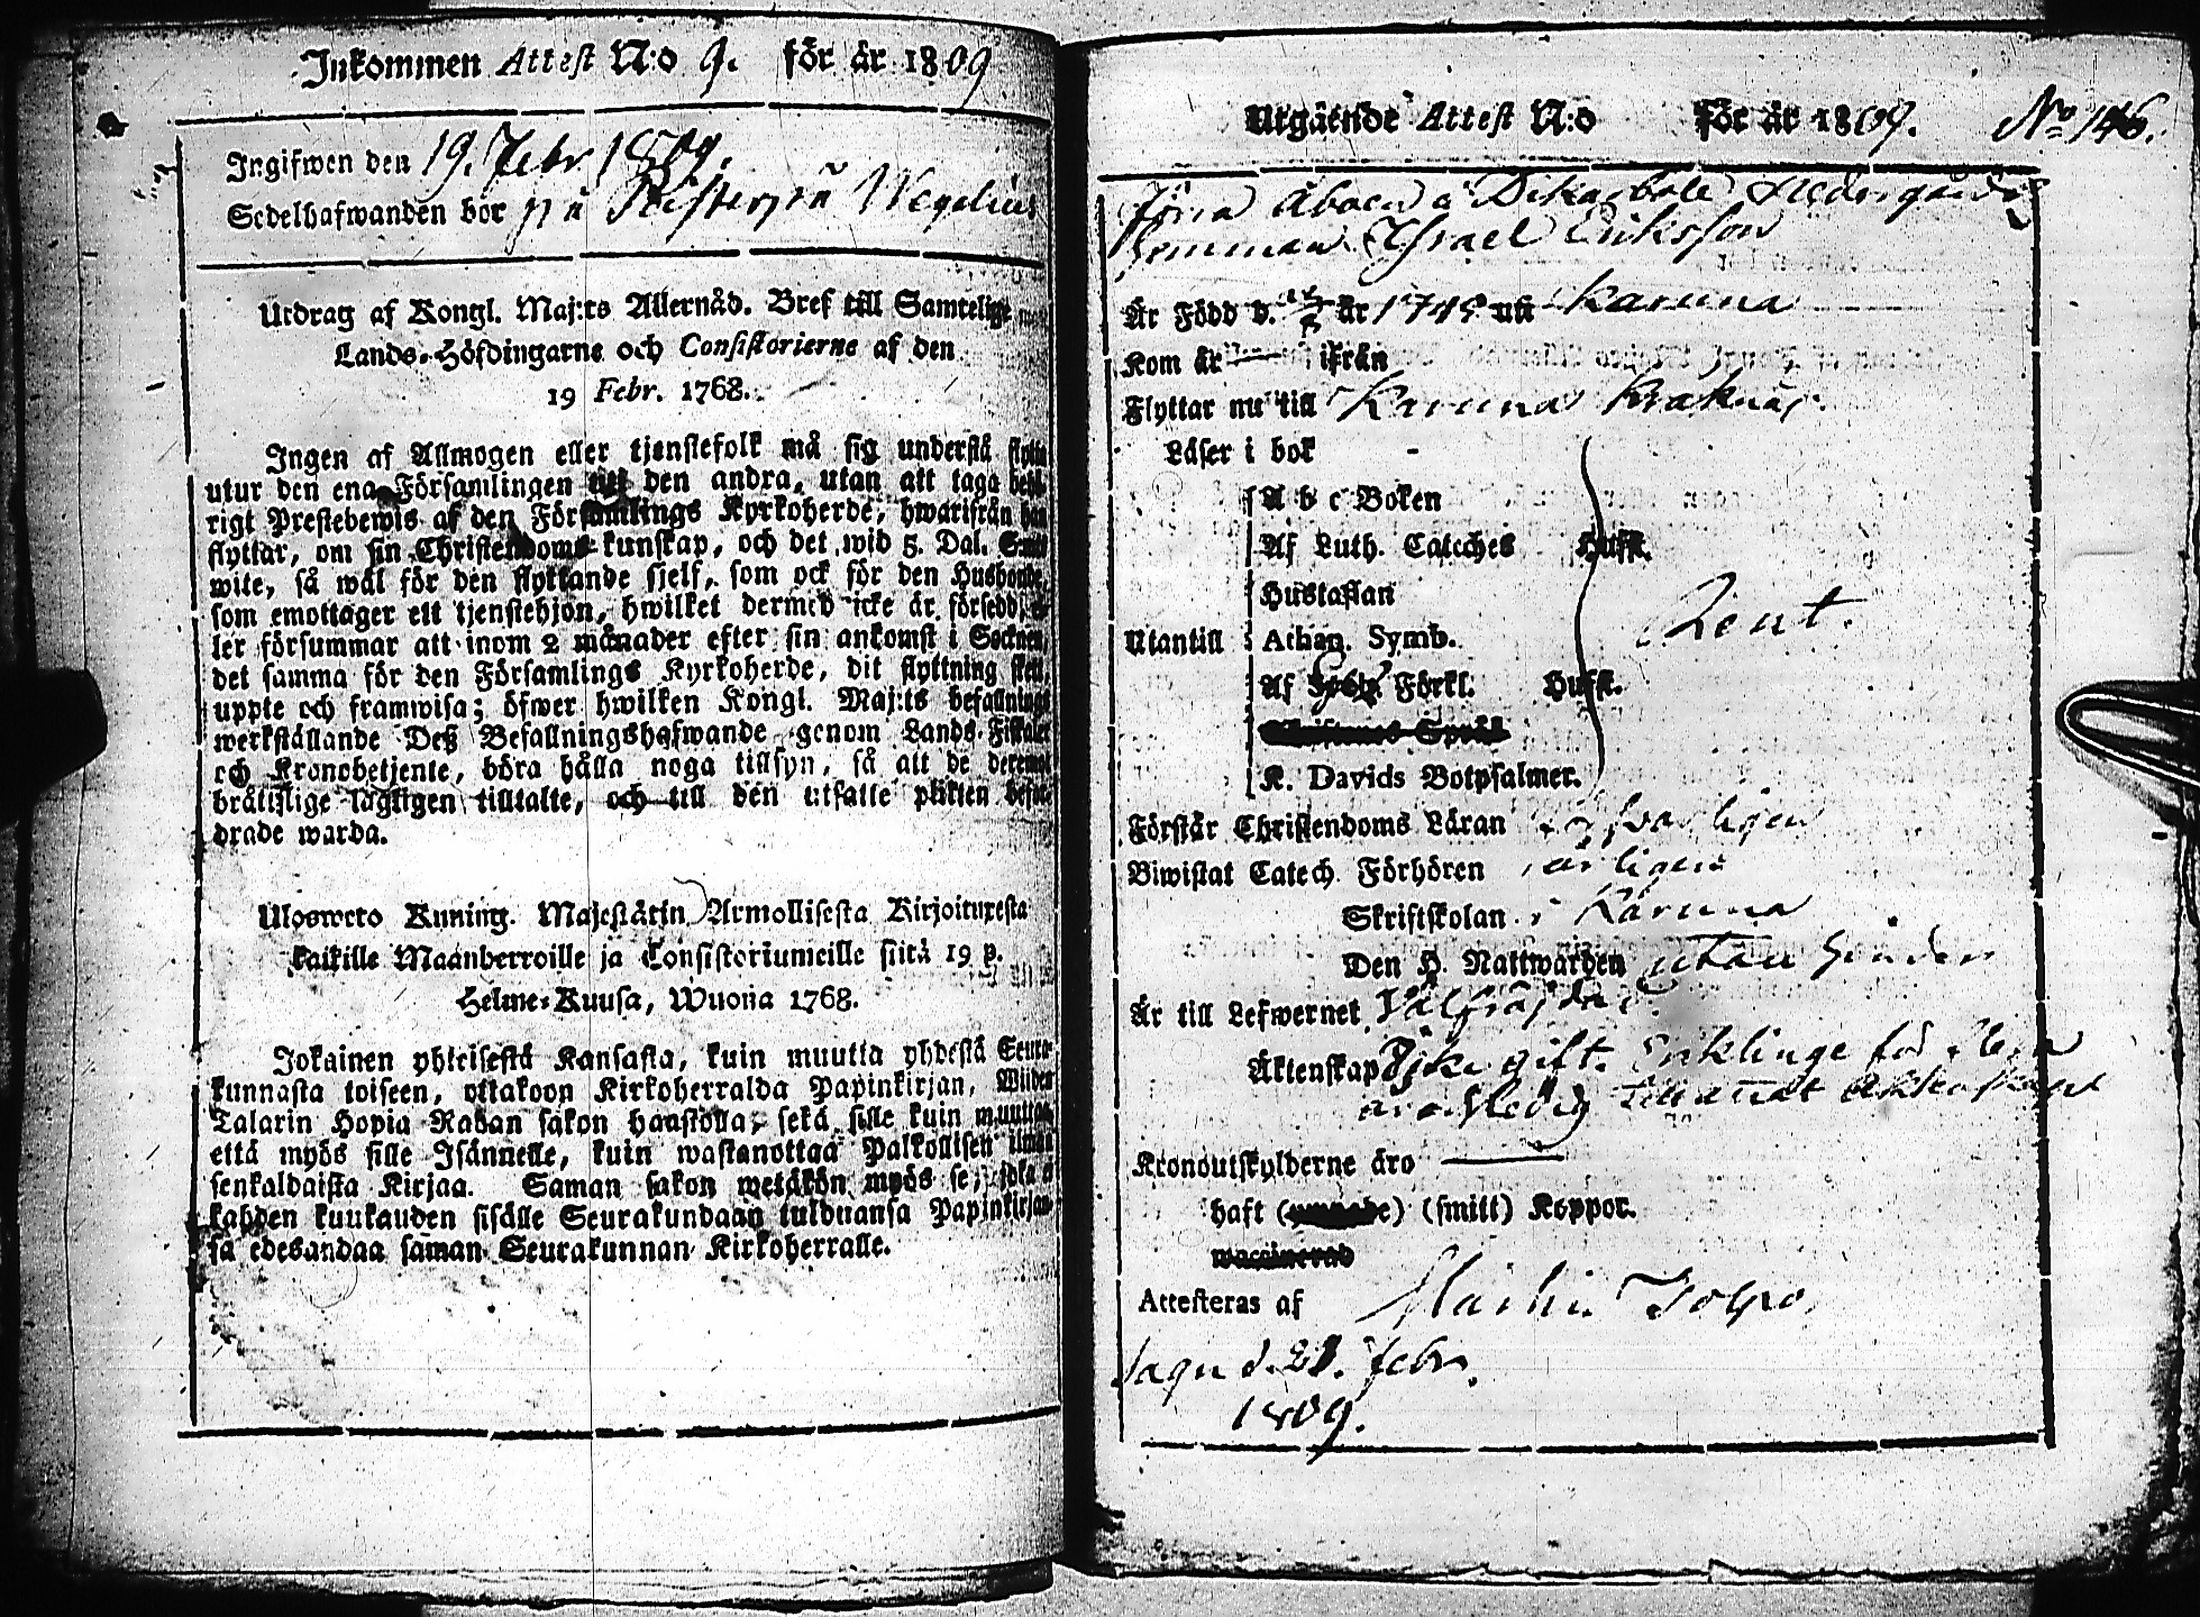 Inkommen Attest N:o 9. för år 1809
Ingifwen den 19. Febr. 1809.
Sedelhafwanden bor på Wegelius
Utdrag af Kongl. Maj:ts Allernåd. Bref till Samtelige
Lands-Höfdingarne och Consistorierne af den
19 Febr. 1768.
Ingen af Allmogen eller tjenstefolk må sig understå flytta
utur den ena Församlingen till den andra, utan att taga behö-
rigt Prestebewis af den Församlings Kyrkoherde, hwarifrån han
flyttar, om sin Christendoms-kunskap, och det wid 5. Dal. Smt
wite, så wäl för den flyttande sjelf, som ock för den Husbonde,
som emottager ett tjenstehjon, hwilket dermed icke är försedd, el-
ler försummar att inom 2 månader efter sin ankomst i Socknen,
det samma för den Församlings Kyrkoherde, dit flyttning sker,
uppte och framwisa; öfwer hwilken Kongl. Maj:ts befallnings
werkställande Deß Befallningshafwande genom Lands-Fiskaler
och Kronobetjente, böra hålla noga tillsyn, så att de deremot
bråttslige lagligen tilltalte, och till den utsatte plikten befor-
drade warda.
Ulosweto Kuning. Majestätin Armollisesta Kirjoituxesta
kaikille Maanherroille ja Consistoriumeille siitä 19 p.
Helme-Kuusa, Wuonna 1768.
Jokainen yhteisestä Kansasta, kuin muutta yhdestä Seura-
kunnasta toiseen, ottakoon Kirkoherralda Papinkirjan, Wiiden
Talarin Hopia Rahan sakon haastolla, sekä sille kuin muuttaa,
että myös sille Isännelle, kuin wastanottaa Palkollisen ilman
senkaldaista Kirjaa. Saman sakon wetäkön myös se, joka ei
kahden kuukauden sisälle Seurakundaan tulduansa Papinkirjan-
sa edesandaa saman Seurakunnan Kirkoherralle.
Utgående Attest N:o För år 1809. No 146.
Förra Åboen å Dikarbole Nedergårds
hemman Israel Eriksson
Är Född d. år 1745 uti Karuna
Kom år ifrån
Flyttar nu till Karuna Kraknäs
Läser i bok
A b c Boken
Af Luth. Cateches Hufst.
Hustaflan
Utantill Athan. Symb. Rent.
Af Förkl. Hufst.
K. Davids Botpsalmer.
Förstår Christendoms Läran försvarligen
Biwistat Catech. Förhören årligen
Skriftskolan i Karuna
Den H. Nattwarden utan hinder
Är till Lefwernet Välfräjdad.
Äktenskap Enkling
ledig till annat äktenskap
Kronoutskylderne äro
haft (smitt) Koppor.
waccinerad
Attesteras af Martin Tolpo.
Sagu d. 21. febr.
1809.